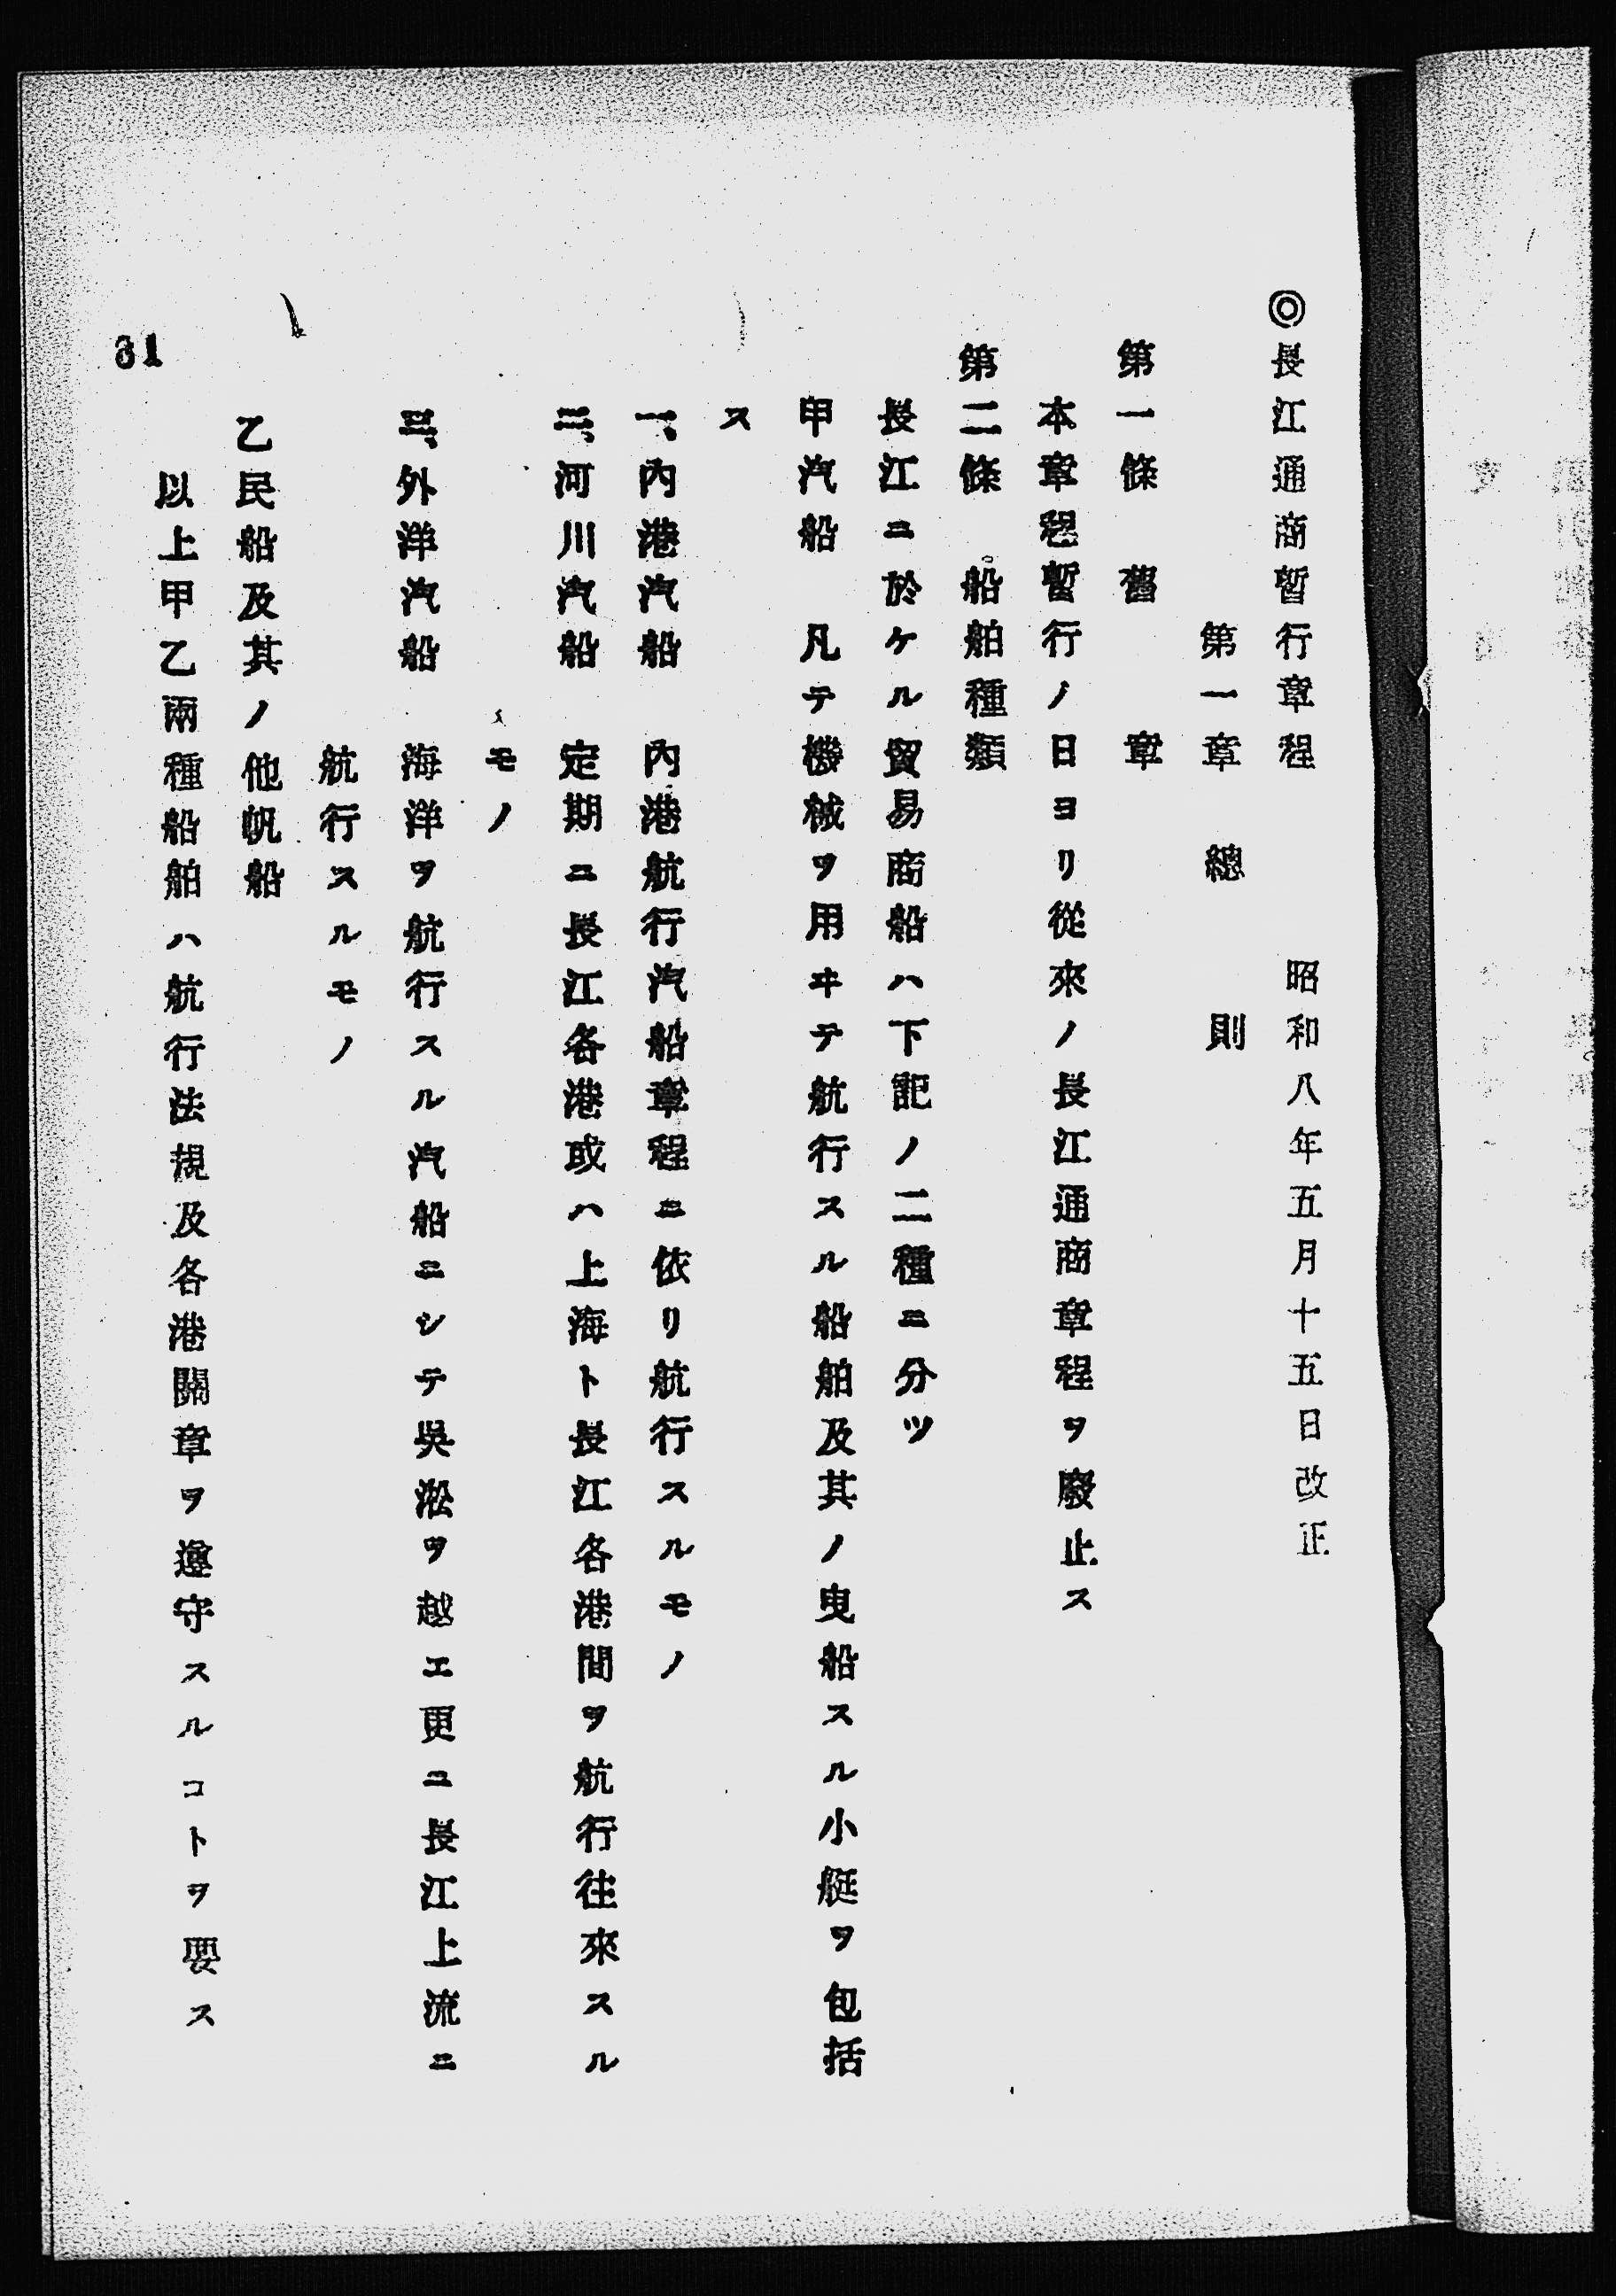 ◎長江通商暫行章程　昭和八年五月十五日改正
第一章　總則
第一條　舊章
本章程暫行ノ日ヨリ從來ノ長江通商章程ヲ廢止ス
第二條　船舶種類
長江ニ於ケル貿易商船ハ下記ノ二種ニ分ツ
甲汽船　凡テ機械ヲ用ヰテ航行スル船舶及其ノ曳船スル小艇ヲ包括
ス
一、內港汽船　內港航行汽船章程ニ依リ航行スルモノ
二、河川汽船　定期ニ長江各港或ハ上海ト長江各港間ヲ航行往來スル
モノ
三、外洋汽船　海洋ヲ航行スル汽船ニシテ吳淞ヲ越エ更ニ長江上流ニ
航行スルモノ
乙民船及其ノ他帆船
以上甲乙兩種船舶ハ航行法規及各港關章ヲ遵守スルコトヲ要ス
31